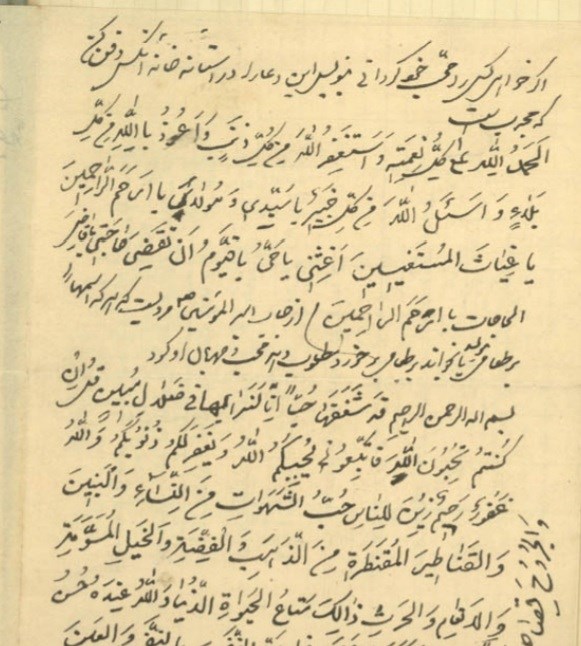 اگر خواهی کسی را محب خود گردانی بنویس این دعا را در آستانه خانه آنکس دفن کن
که مجرب است
اَلحَمدُ اللهِ علی کُلِّ نِعمَتِهِ وَ اَستَغفِرُ اللهَ مِن کُلِّ ذَنبٍ وَ اَعُوذُ بِاللهِ مِن کُلِّ
بَلاءٍ وَ اَسئَلُ اللهَ مِن کُلِّ خَیرٍ یا سَیِّدی وَ مَولائی یا اَرحَمَ الرّاحِمینَ
یا غِیاثَ المُستَغیثینَ اَغِثنی یا حَیُّ یا قَیُّومُ اَن تَقضِیَ حاجَتی یا قاضِیَ
الحاجات یا اَرحَمَ الرّاحِمینَ از جناب امیر المومنین مرویست که هر که اسمها را
بر طعام بخواند بر طعام بخورد مطلوب
بسم الله الرحمن الرحیم قَد شَغَفَها حُبّاً اِنّا لَنَراها فی ضَلالٍ مُبینٍ قُل اِن
کُنتُم تُحِبُّونَ اللهَ فَاتَّبِعُونی یُحبِبکُمُ اللهُ وَ یَغفِر لَکُم ذُنُوبَکُم وَ اللهُ
غَفُورٌ رَحیمٌ زُیِّنَ لِلنّاسِ حُبُّ الشَّهَواتِ مِنَ النِّساءِ وَ البَنینَ
وَ القَناطیرِ المُقَنطَرَةِ مِنَ الذَّهَبِ وَ الفِضَّةِ وَ الخَیلِ المُسَوَّمَةِ
وَ الاَنعامِ وَ الحَرثِ ذالِکَ مَتاعُ الحَیوةِ الدُّنیا وَ اللهُ عِندَهُ حُسنُ
وَ العَینَ
وَ الجُرُوحَ قِصاص